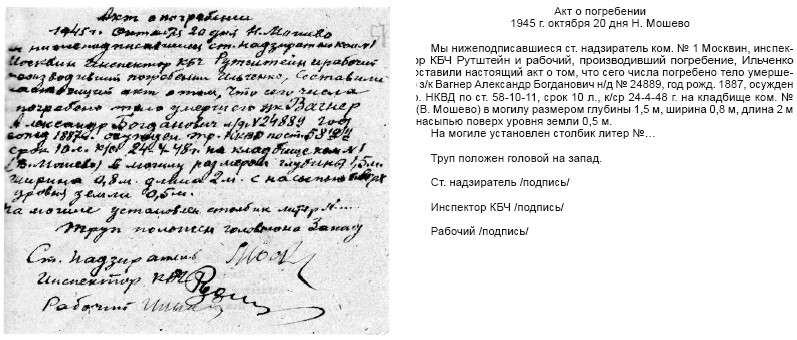 Акт о погребении
1945 г. Октября 20 дня Н. Мошево
Мы нижеподписавшиеся ст. надзиратель ком №1
Москвин Инспектор КБЧ Рутштейн и рабочий
производивший погребение Ильченко, составили
настоящий акт о том, что сего числа
погребено тело умершего з/к Вагнер
Александр Богданович н/д №24889 год
рожд 1887 г. осужден тр. НКВД по ст. 58 10 11
срок 10 л. к/ср 24-4-48 г. на кладбище ком №1
(В. Мошево) в могилу размером глубины 1,5 м.
ширина 0,8 м. длина 2 м. с насыпью поверх
уровня земли 0,5 м.
На могиле установлен столбик литер №...
Труп положен головой на Запад
Ст. Надзиратель
Инспектор КБЧ
Рабочий
Акт о погребении
1945 г. октября 20 дня Н. Мошево
Мы нижеподписавшиеся ст. надзиратель ком. № 1 Москвин, инспек-
ор КБЧ Рутштейн и рабочий, производивший погребение, Ильченко
оставили настоящий акт о том, что сего числа погребено тело умерше-
о з/к Вагнер Александр Богданович н/д № 24889, год рожд. 1887, осужден
. НКВД по ст. 58-10-11, срок 10 л., к/ср 24-4-48 г. на кладбище ком. №
(В. Мошево) в могилу размером глубины 1,5 м, ширина 0,8 м, длина 2 м
насыпью поверх уровня земли 0,5 м.
На могиле установлен столбик литер №…
Труп положен головой на запад.
Ст. надзиратель /подпись/
Инспектор КБЧ /подпись/
Рабочий /подпись/